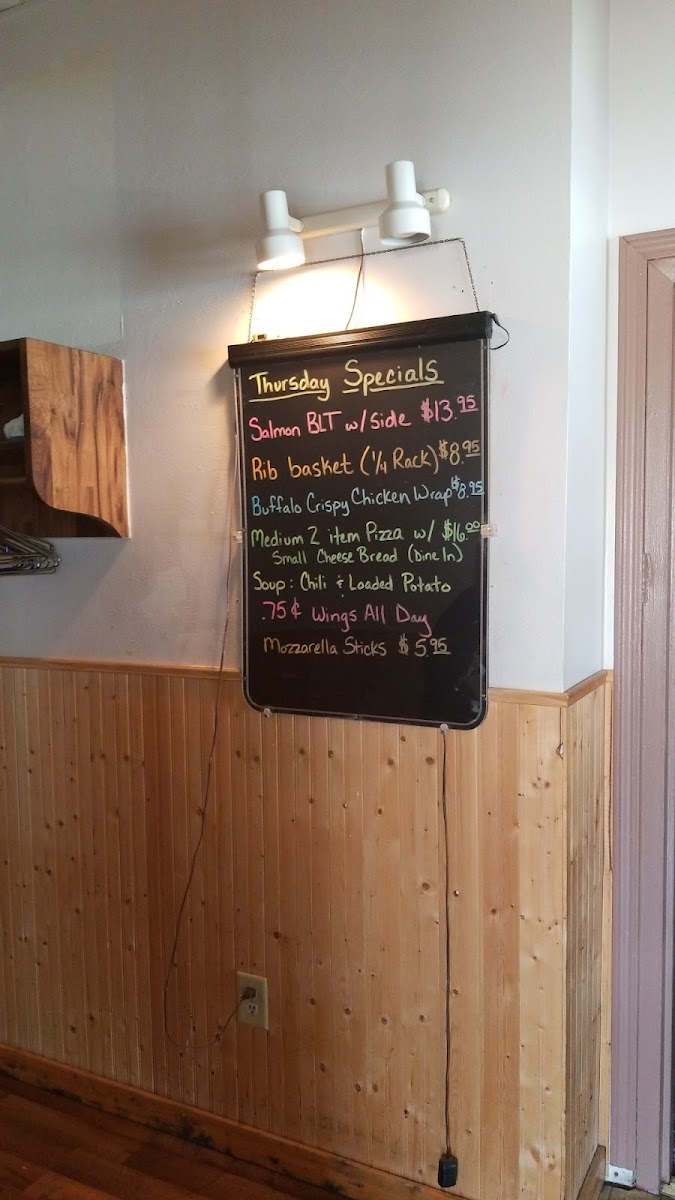 Thursday Specials
Salmon BLT w/side $13.95
Rib basket (1/4 Rack) $8.95
Buffalo Crispy Chicken Wrap $8.95
Medium 2 item Pizza w/ $16.00
Small Cheese Bread (Dine In)
Soup: Chili & Loaded Potato
.75¢ Wings All Day
Mozzarella Sticks $5.95